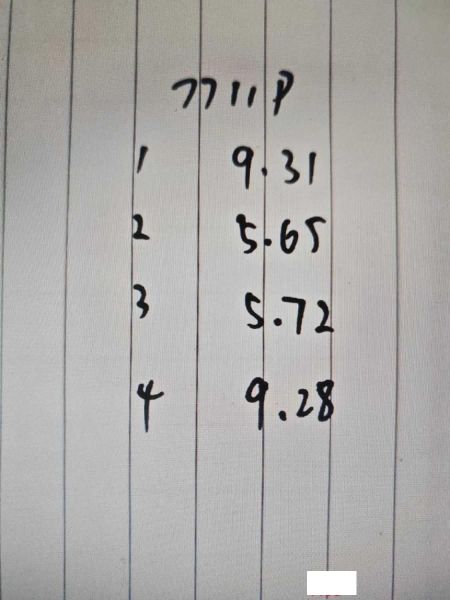 7711P
1 9.31
2 5.65
3 5.72
4 9.28